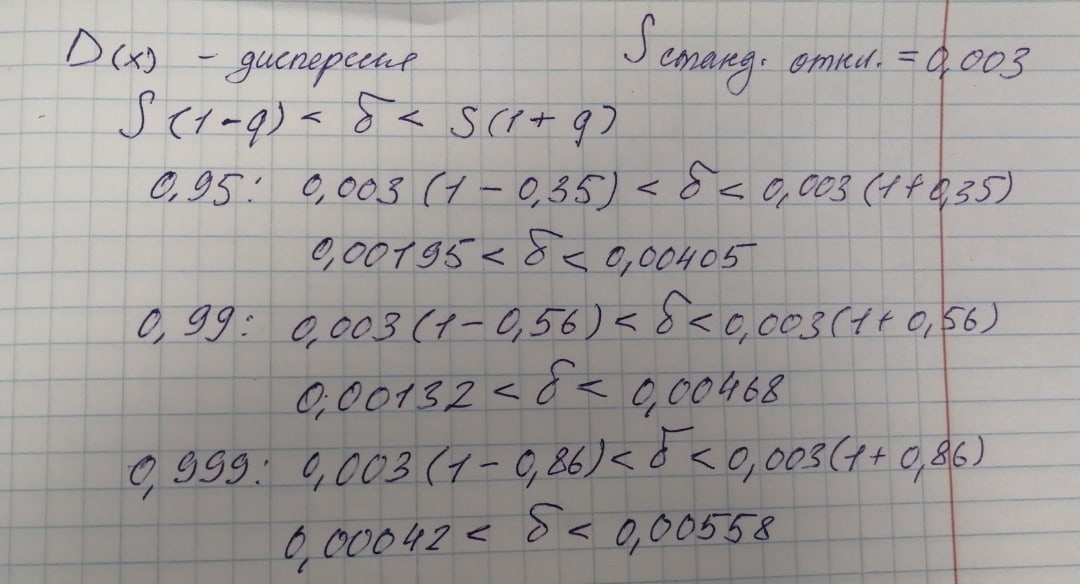 D(x) - дисперсия S станд. откл. = 0,003
S(1-q) < σ < S(1+q)
0,95: 0,003(1-0,35) < σ < 0,003(1+0,35)
0,00195 < σ < 0,00405
0,99: 0,003(1-0,56) < σ < 0,003(1+0,56)
0,00132 < σ < 0,00468
0,999: 0,003(1-0,86) < σ < 0,003(1+0,86)
0,00042 < σ < 0,00558